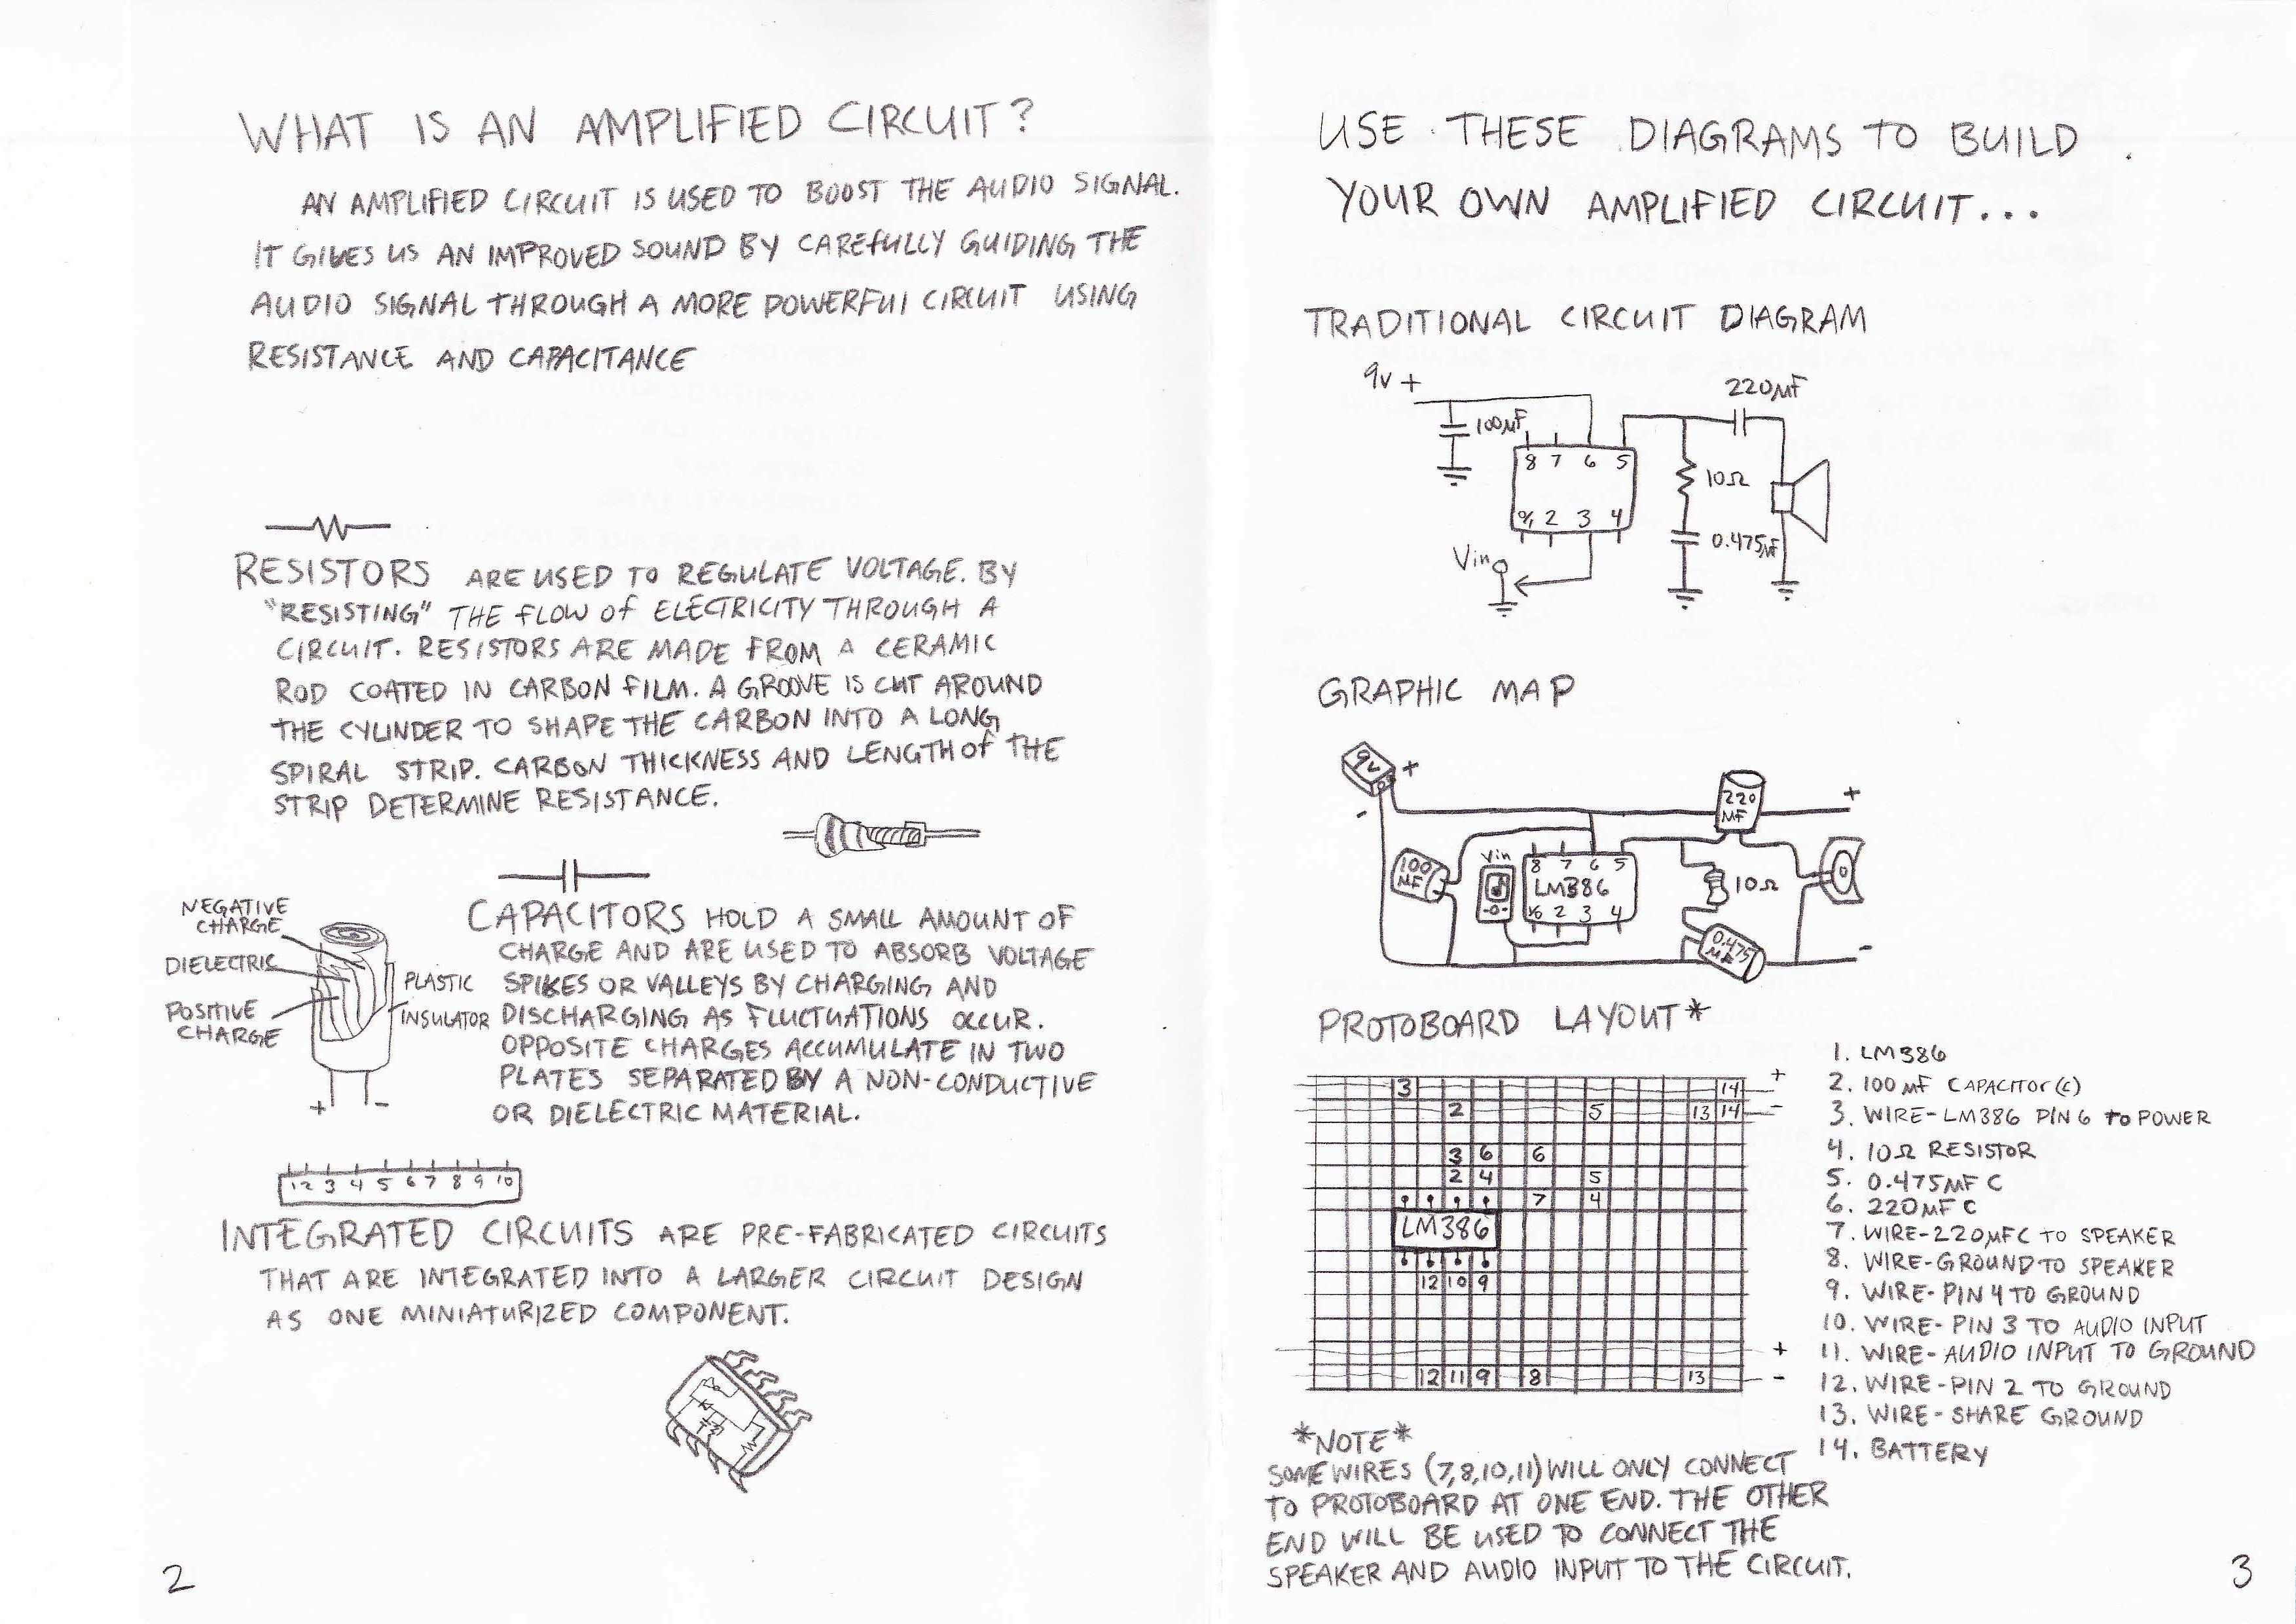 WHAT IS AN AMPLIFIED CIRCUIT?
AN AMPLIFIED CIRCUIT IS USED TO BOOST THE AUDIO SIGNAL.
IT GIVES US AN IMPROVED SOUND BY CAREFULLY GUIDING THE
AUDIO SIGNAL THROUGH A MORE POWERFUL CIRCUIT USING
RESISTANCE AND CAPACITANCE
RESISTORS ARE USED TO REGULATE VOLTAGE. BY
"RESISTING" THE FLOW OF ELECTRICITY THROUGH A
CIRCUIT. RESISTORS ARE MADE FROM A CERAMIC
ROD COATED IN CARBON FILM. A GROOVE IS CUT AROUND
THE CYLINDER TO SHAPE THE CARBON INTO A LONG,
SPIRAL STRIP. CARBON THICKNESS AND LENGTH OF THE
STRIP DETERMINE RESISTANCE.
NEGATIVE
CHARGE
DIELECTRIC
POSITIVE
CHARGE
PLASTIC
INSULATOR
+ -
CAPACITORS HOLD A SMALL AMOUNT OF
CHARGE AND ARE USED TO ABSORB VOLTAGE
SPIKES OR VALLEYS BY CHARGING AND
DISCHARGING AS FLUCTUATIONS OCCUR.
OPPOSITE CHARGES ACCUMULATE IN TWO
PLATES SEPARATED BY A NON-CONDUCTIVE
OR DIELECTRIC MATERIAL.
1 2 3 4 5 6 7 8 9 10
INTEGRATED CIRCUITS ARE PRE-FABRICATED CIRCUITS
THAT ARE INTEGRATED INTO A LARGER CIRCUIT DESIGN
AS ONE MINIATURIZED COMPONENT.
2
USE THESE DIAGRAMS TO BUILD
YOUR OWN AMPLIFIED CIRCUIT...
TRADITIONAL CIRCUIT DIAGRAM
9V +
220µF
100µF
8 7 6 5
10Ω
2 3 4
0.475µF
Vin
GRAPHIC MAP
9V +
-
220
MF
+
100
MF
Vin
8 7 6 5
LM386
10Ω
2 3 4
0.475
MF
-
PROTOBOARD LAYOUT*
3 14 +
2 5 13 14 -
3 6 6
2 4 5
7 4
LM386
12 10 9
+
12 11 9 8 13 -
1. LM386
2. 100µF CAPACITOR (C)
3. WIRE-LM386 PIN 6 TO POWER
4. 10Ω RESISTOR
5. 0.475MF C
6. 220MF C
7. WIRE-220µFC TO SPEAKER
8. WIRE-GROUND TO SPEAKER
9. WIRE-PIN 4 TO GROUND
10. WIRE-PIN 3 TO AUDIO INPUT
11. WIRE-AUDIO INPUT TO GROUND
12. WIRE-PIN 2 TO GROUND
13. WIRE-SHARE GROUND
14. BATTERY
*NOTE*
SOME WIRES (7,8,10,11) WILL ONLY CONNECT
TO PROTOBOARD AT ONE END. THE OTHER
END WILL BE USED TO CONNECT THE
SPEAKER AND AUDIO INPUT TO THE CIRCUIT.
3